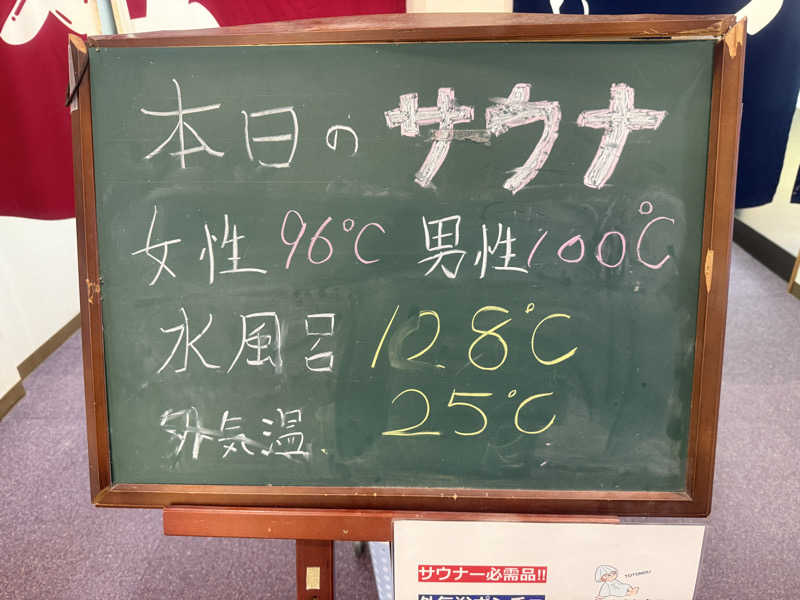 本日のサウナ
女性 96℃ 男性 100℃
水風呂 128℃
外気温 25℃
サウナー必需品!!
TOTONOU